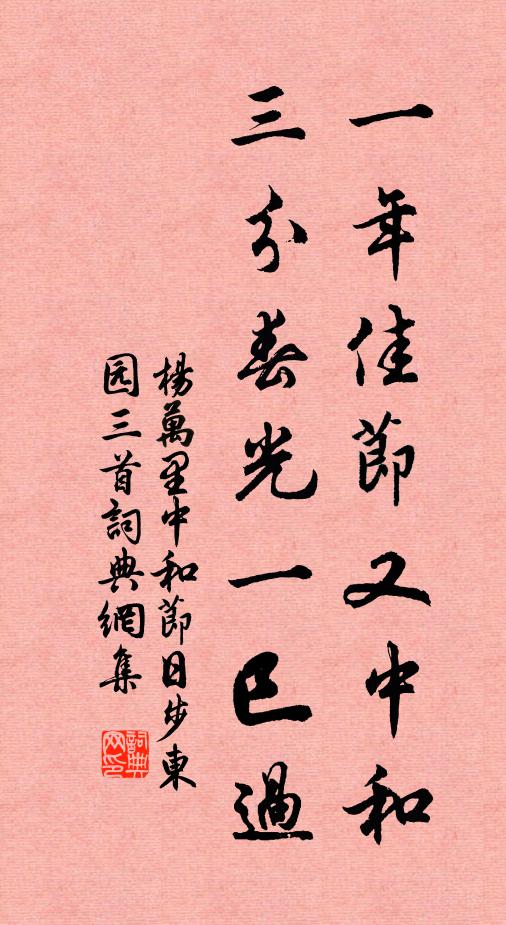 一年佳節又中和
三分春光一已過
楊萬里中和節日步東
园三首詞典網集
詞典
网印